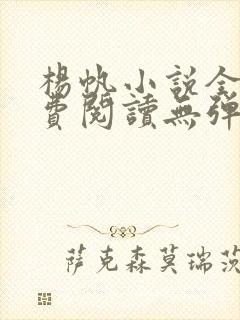 楊帆小說全
費閱讀無彈
萨克森莫瑞茨